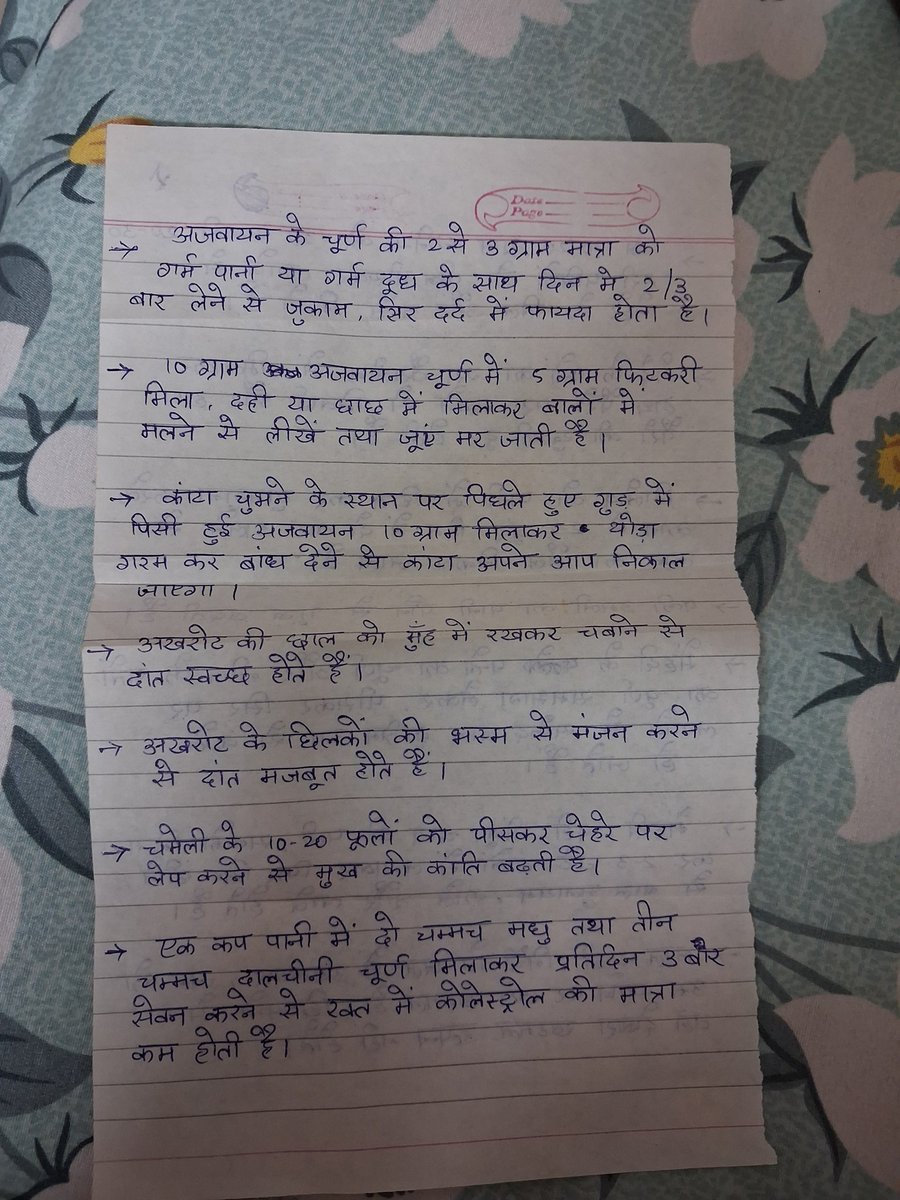 Date
Page
→ अजवायन के चूर्ण की 2 से 3 ग्राम मात्रा को
गर्म पानी या गर्म दूध के साथ दिन मे 2/3
बार लेने से जुकाम, सिर दर्द में फायदा होता है।
→ 10 ग्राम अजवायन चूर्ण में 5 ग्राम फिटकरी
मिला, दही या छाछ में मिलाकर बालों में
मलने से लीखें तथा जूएं मर जाती है।
→ कांटा चुभने के स्थान पर पिघले हुए गुड़ में
पिसी हुई अजवायन 10 ग्राम मिलाकर थोड़ा
गरम कर बांध देने से कांटा अपने आप निकाल
जाएगा।
→ अखरोट की छाल को मुँह में रखकर चबाने से
दांत स्वच्छ होते हैं।
→ अखरोट के छिलकों की भस्म से मंजन करने
से दांत मजबूत होते हैं।
→ चमेली के 10-20 फूलों को पीसकर चेहरे पर
लेप करने से मुख की कांति बढ़ती है।
→ एक कप पानी में दो चम्मच मधु तथा तीन
चम्मच दालचीनी चूर्ण मिलाकर प्रतिदिन 3 बार
सेवन करने से रक्त में कोलेस्ट्रोल की मात्रा
कम होती है।